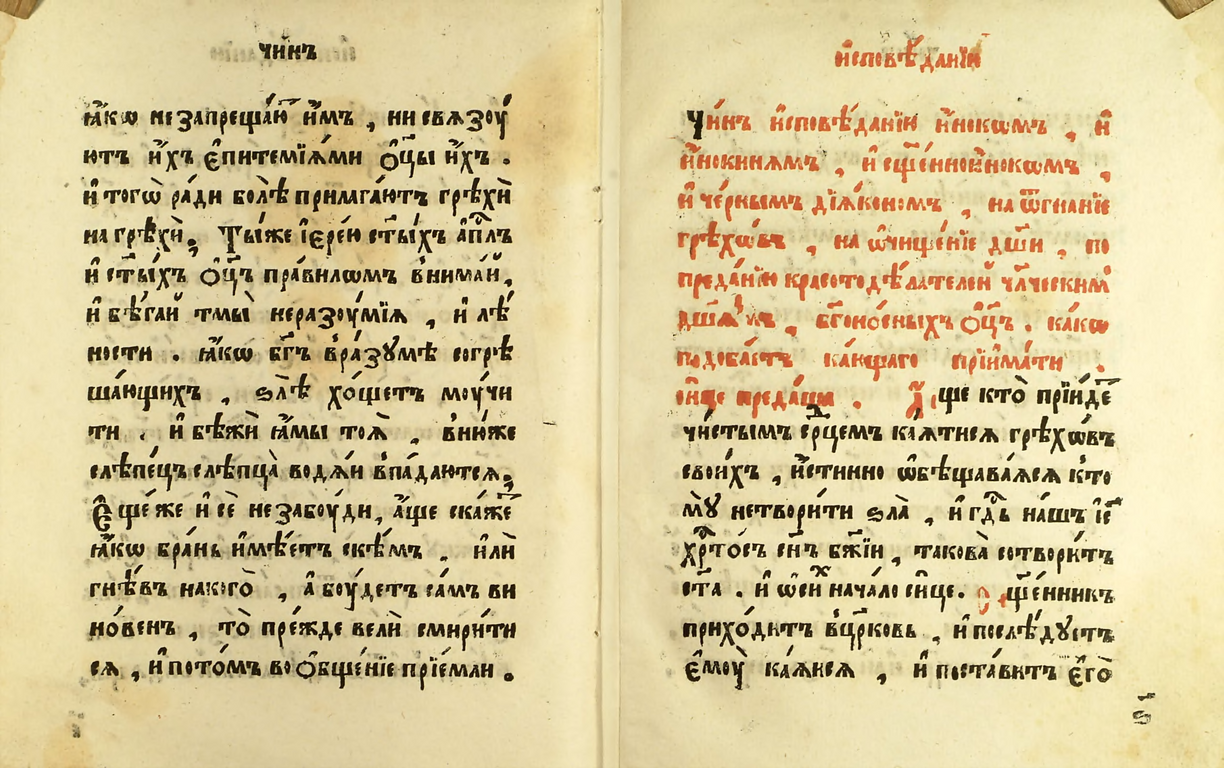 чи́нъ
ꙗ҆́кѡ не запреща́ю и҆̀мъ , ни свѧзоу́
ютъ и҆́хъ є҆питемїѧ́ми ѻ҆ц҃ы и҆́хъ .
и҆ тогѡ̀ ра́ди бо́лѣ прилага́ютъ грѣхѝ
на грѣхѝ . Ты́же і҆ере́ю ст҃ы́хъ а҆пⷭ҇лъ
и҆ ст҃ы́хъ ѻ҆ц҃ъ пра́вилѡмъ внима́й ,
и҆ бѣ́гай тмы̀ неразоу́мїѧ , и҆ лѣ́
ности . ꙗ҆́кѡ бг҃ъ вразꙋмѣ̀ согрѣ
ша́ющихъ , ѕлѣ̀ хо́щетъ моу́чи
ти . и҆ бѣжѝ ꙗ҆́мы тоѧ̀ , вню́же
слѣпе́цъ слѣпца̀ водѧ́и впа́даютсѧ ,
Є҆ще́ же и҆ сѐ не забоу́ди , а҆́ще ска́жеⷮ
ꙗ҆́кѡ бра́нь и҆мѣ́етъ скѣ́мъ , и҆лѝ
гнѣ́въ накого̀ , а боу́детъ са́мъ ви
но́венъ , то̀ пре́жде велѝ смири́ти
сѧ , и҆ пото́мъ во ѻ҆бще́нїе прїе́мли .
и҆сповѣ́данїю
Чи́нъ и҆сповѣ́данїю и҆́нокѡмъ , и҆
и҆́нокинѧмъ , и҆ сщ҃еннои́нокѡмъ ,
и҆ че́рнымъ дїѧ́кономъ , на ѿгна́нїе
грѣхѡ́въ , на ѡ҆чище́нїе дш҃и , по
преда́нїю красотодѣ́лателей чл҃ческим̾
бг҃оно́сныхъ ѻ҆ц҃ъ . ка́кѡ
подоба́етъ ка́ющаго прїима́ти .
си́це преда́ша . А҆́ще кто̀ прїи́деⷮ
чи́стымъ се́рⷣцемъ ка́ѧтисѧ грѣхѡ́въ
свои́хъ , и҆́стинно ѡ҆бѣщава́ѧсѧ кто
мꙋ̀ нетвори́ти ѕла̀ , и҆ гдⷭ҇ь на́шъ і҆с҃
хрⷭ҇то́съ сн҃ъ бж҃їи , такова̀ сотвори́тъ
ст҃а . и҆ ѡ҆сиⷯ нача́ло си́це . Сщ҃е́нникъ
прихо́дитъ вцр҃ковь , и҆ послѣ́дꙋетъ
є҆моу̀ ка́ѧисѧ , и҆ поста́витъ є҆го̀
ѕ҃